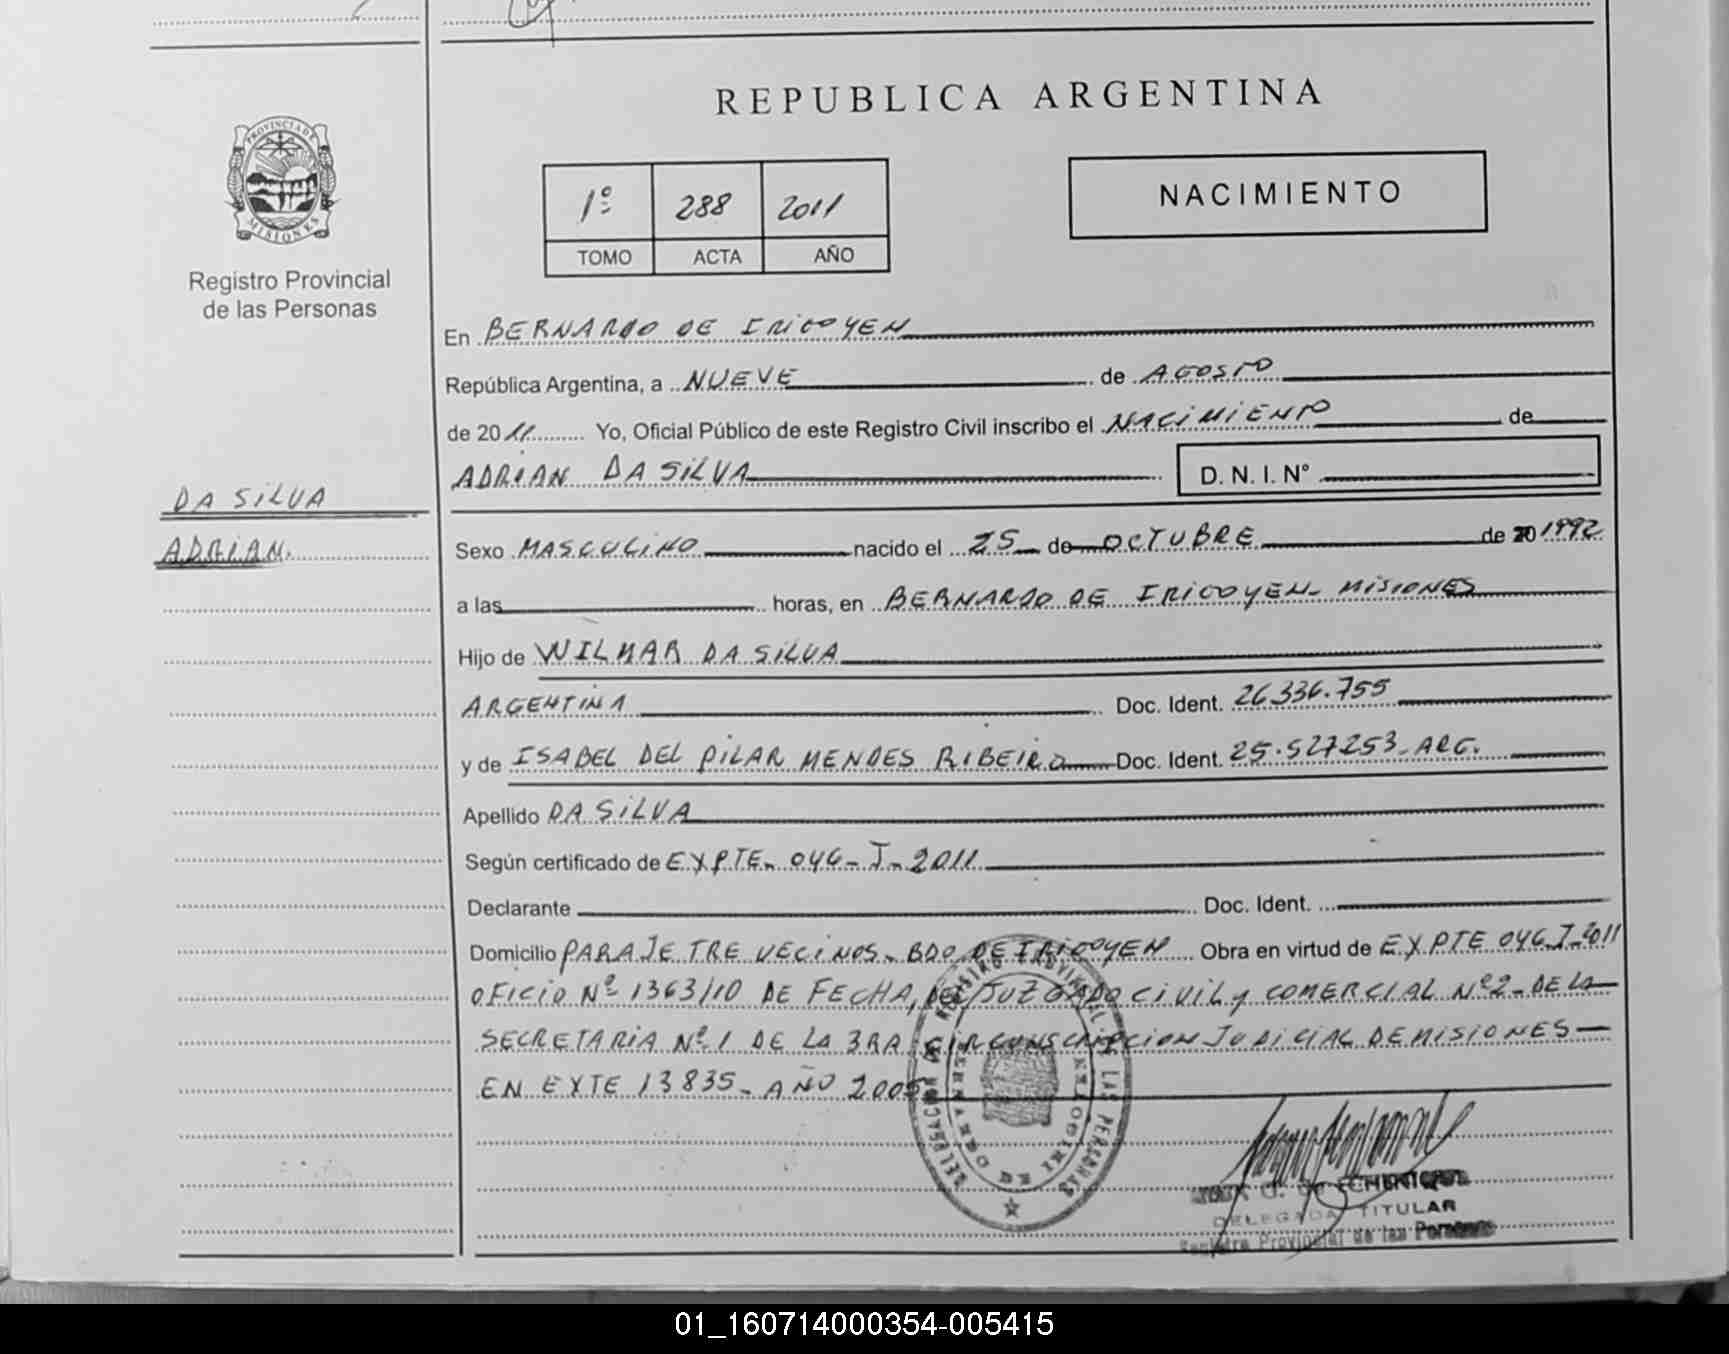 REPUBLICA ARGENTINA
PROVINCIA DE MISIONES
Registro Provincial
de las Personas
1º 288 2011
TOMO ACTA AÑO
NACIMIENTO
En BERNARDO DE IRIGOYEN
República Argentina, a NUEVE de AGOSTO
de 2011 Yo, Oficial Público de este Registro Civil inscribo el NACIMIENTO de
ADRIAN DA SILVA D. N. I. Nº
DA SILVA
ADRIAN.
Sexo MASCULINO nacido el 25 de OCTUBRE de 1992
a las horas, en BERNARDO DE IRIGOYEN - MISIONES
Hijo de WILMAR DA SILVA
ARGENTINA Doc. Ident. 26.336.755
y de ISABEL DEL PILAR MENDES RIBEIRO Doc. Ident. 25.527253 - ARG.
Apellido DA SILVA
Según certificado de EXPTE - 046 - I - 2011
Declarante Doc. Ident.
Domicilio PARAJE TRE VECINOS - BDO DE IRIGOYEN Obra en virtud de EXPTE 046-I-2011
OFICIO Nº 1363/10 DE FECHA, DEL JUZGADO CIVIL y COMERCIAL Nº 2 - DE LA
SECRETARIA Nº 1 DE LA 3RA CIRCUNSCRIPCION JUDICIAL DE MISIONES -
EN EXTE 13835 - AÑO 2005
DELEGACION DEL REGISTRO PROVINCIAL DE LAS PERSONAS
BERNARDO DE IRIGOYEN
DELEGADA TITULAR
Registro Provincial de las Personas
01_160714000354-005415